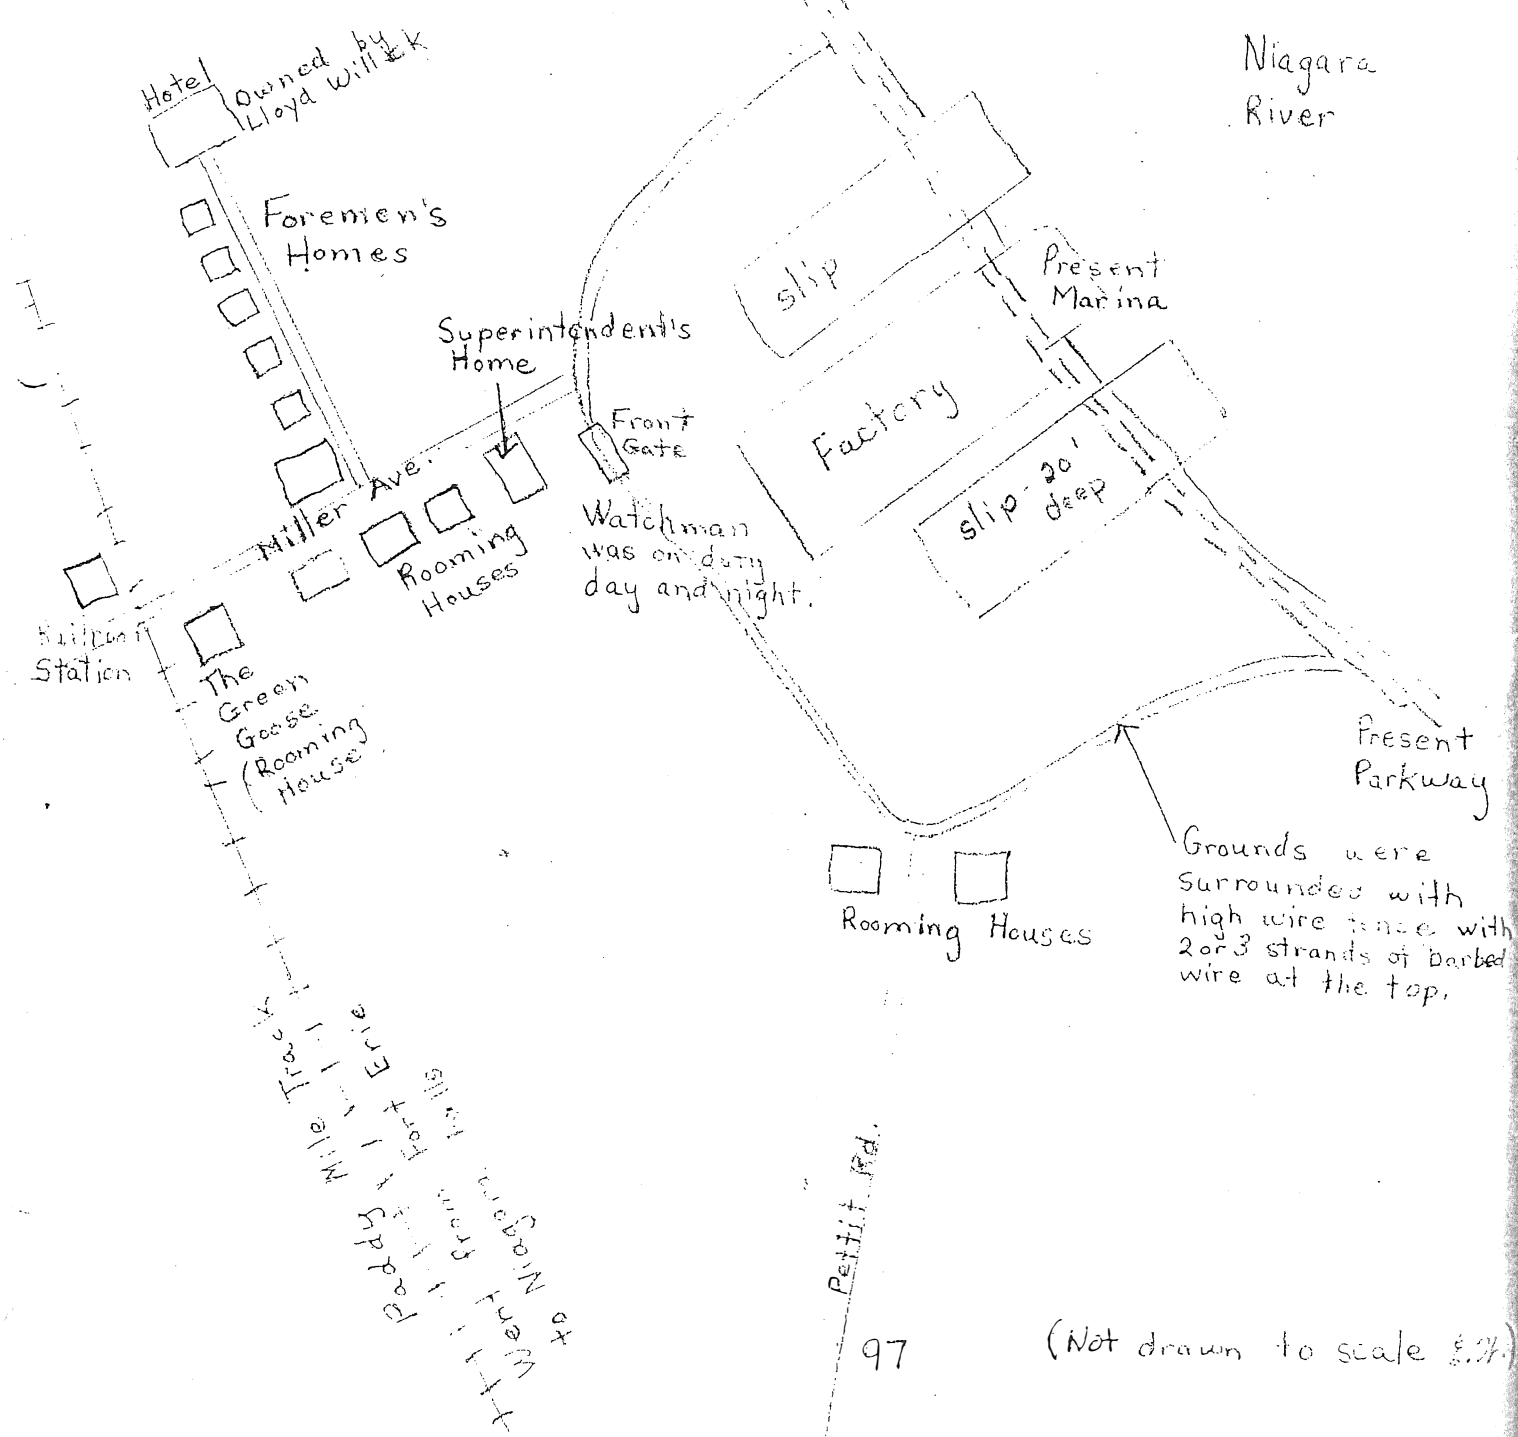 Niagara
River
Hotel
Owned by
Lloyd Willick
Foremen's
Homes
Superintendent's
Home
slip
Present
Marina
Factory
Front
Gate
slip - 20'
deep
Miller Ave.
Watchman
was on duty
day and night.
Rooming
Houses
Railroad
Station
The
Green
Goose
(Rooming
House
Present
Parkway
Grounds were
surrounded with
high wire fence with
2 or 3 strands of barbed
wire at the top.
Rooming Houses
Paddy Mile Track
Went from Fort Erie
to Niagara Falls
Pettit Rd.
97
(Not drawn to scale